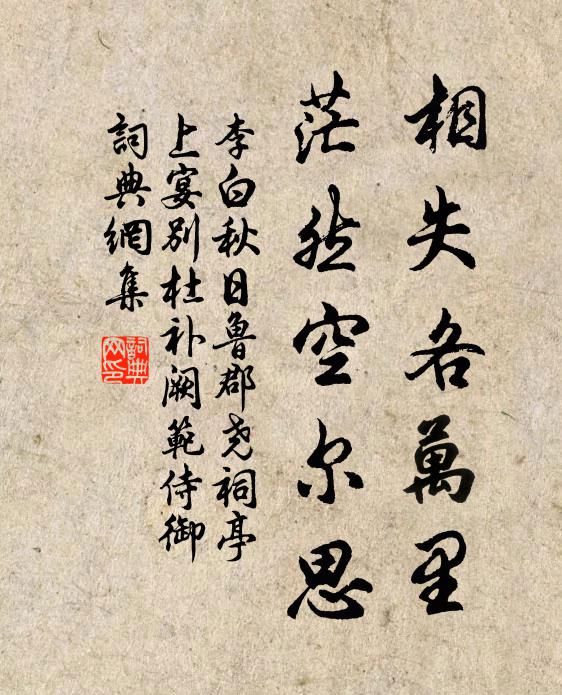 相失各萬里
茫然空尔思
李白秋日魯郡尭祠亭
上宴别杜补阙範侍御
詞典網集
詞典
网印